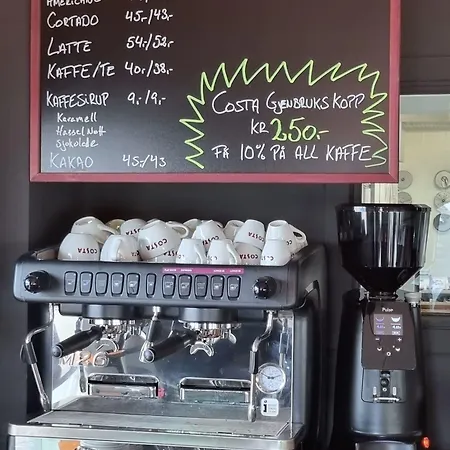 AMERICANO
CORTADO 45.-/43.-
LATTE 54/52,-
KAFFE/TE 40,-/38,-
KAFFESIRUP 9,-/9,-
Karamell
Hassel Nøtt
Sjokolade
KAKAO 45.-/43
COSTA GJENBRUKSKOPP
KR 250.-
FÅ 10% PÅ ALL KAFFE
COSTA
COSTA
COSTA
COSTA
Pulse